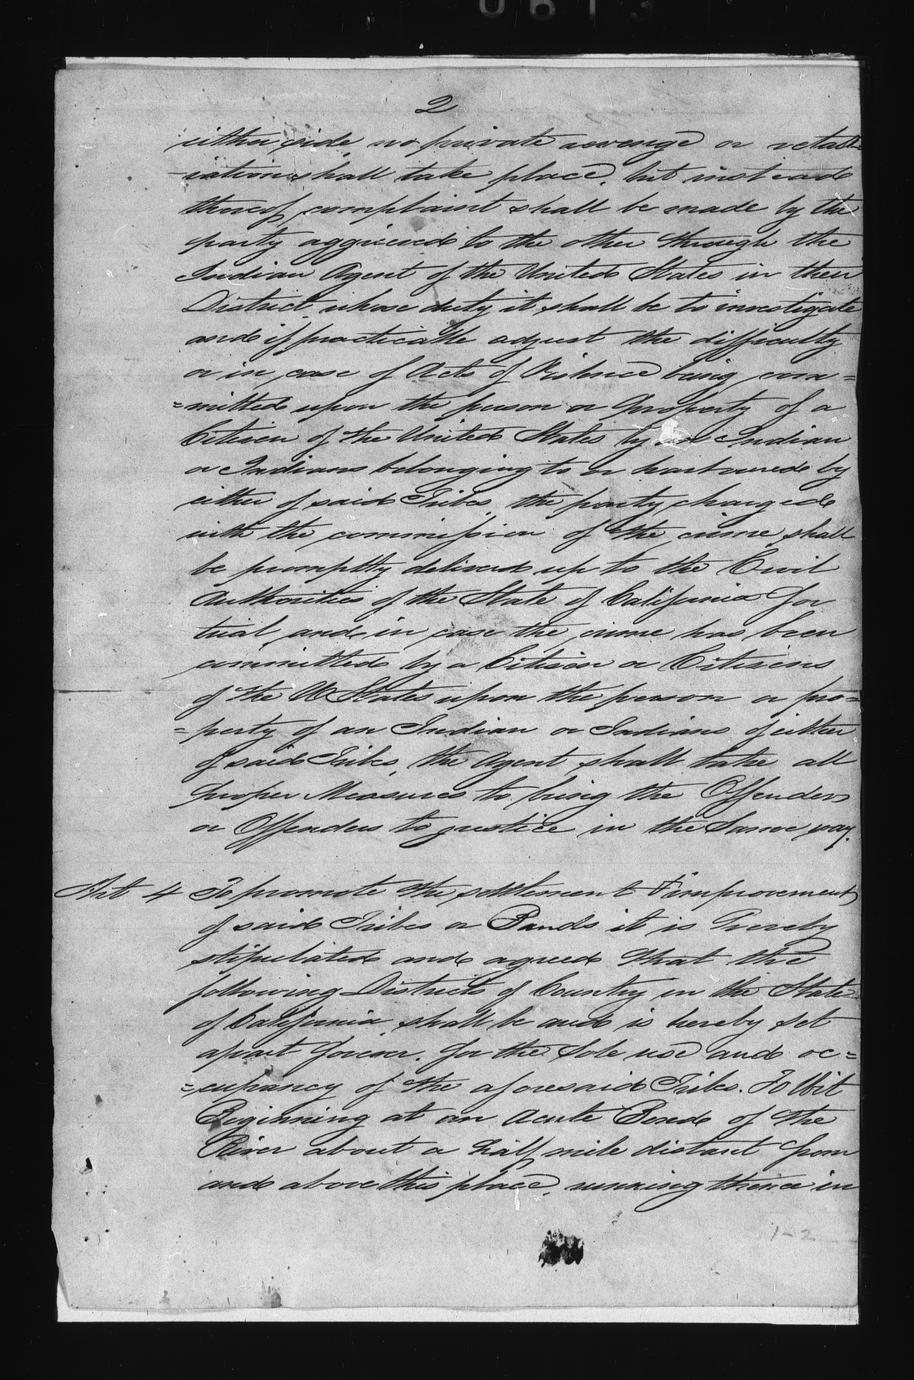 0613
2
either side no private revenge or retal=
=iation shall take place, but instead
thereof, complaint shall be made by the
party aggrieved to the other through the
Indian Agent of the United States in their
District, whose duty it shall be to investigate
and if practicable adjust the difficulty
or in case of Acts of Violence being com=
=mitted upon the person or Property of a
Citizen of the United States by an Indian
or Indians belonging to or harboured by
either of said Tribes, the party charged
with the commission of the crime shall
be promptly delivered up to the Civil
Authorities of the State of California for
trial, and, in case the crime has been
committed by a Citizen or Citizens
of the U States upon the person or pro=
=perty of an Indian or Indians of either
of said Tribes, the Agent shall take all
proper Measures to bring the Offender
or Offenders to justice in the Same way.
Art 4 To promote the settlement & improvement
of said Tribes or Bands it is hereby
stipulated and agreed that the
following District of Country in the State
of California shall be and is hereby set
apart forever, for the Sole use and oc=
=cupancy of the aforesaid Tribes. To Wit
Beginning at an acute Bend of the
River about a half mile distant from
and above this place, running thence in
1-2